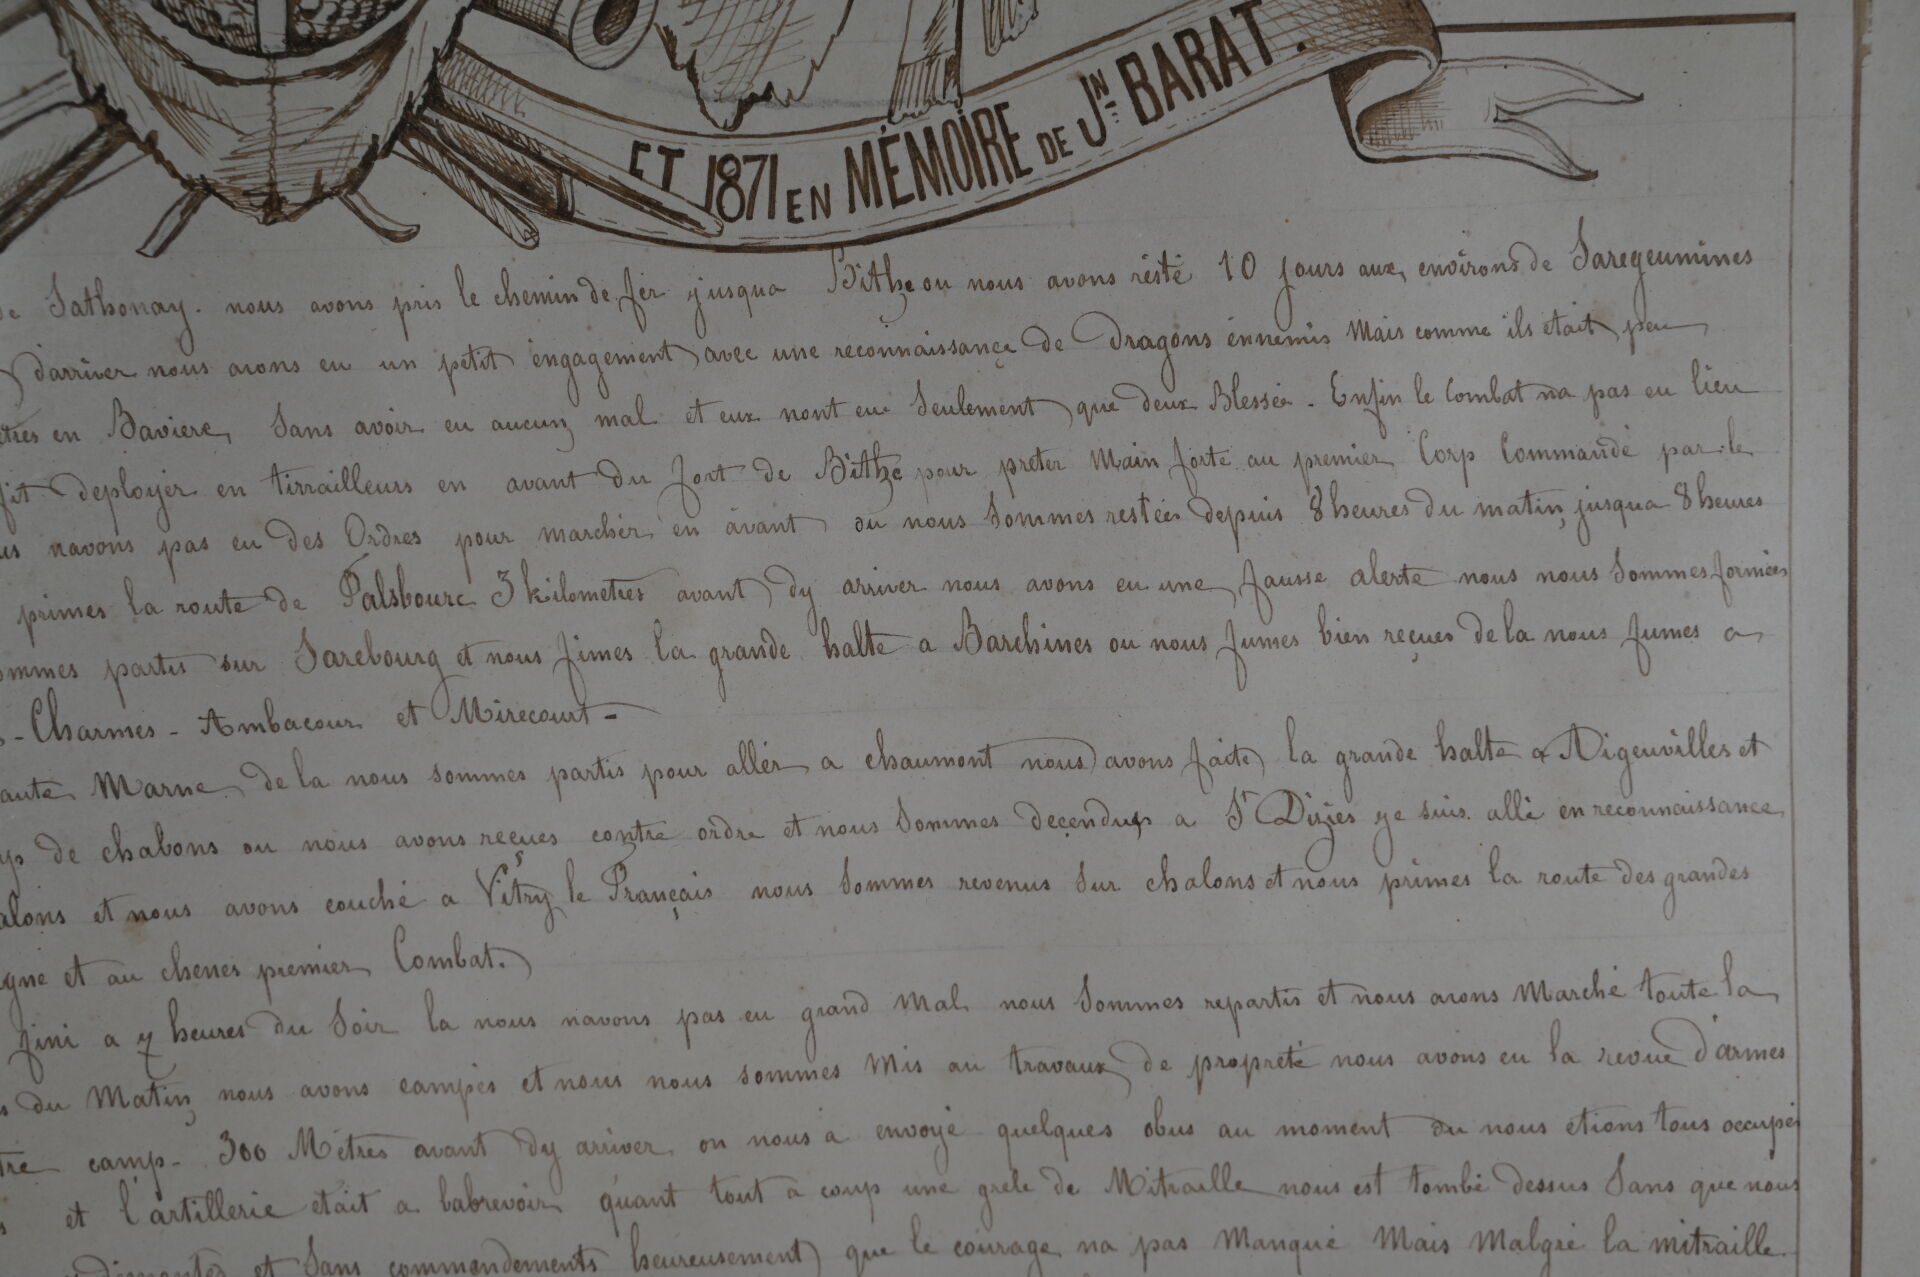 ET 1871 EN MÉMOIRE DE JN BARAT.
de Sathonay. nous avons pris le chemin de fer jusqua Bithe ou nous avons résté 10 jours aux environs de Saregeumines
darriver nous avons eu un petit engagement avec une reconnaissance de Dragons énnemis Mais comme ils etait peu
en Baviere, Sans avoir eu aucun mal et eux nont eu Seulement que deux Blessée. Enfin le Combat na pas eu lieu
fit deployer en tirrailleurs en avant du fort de Bithe pour preter Main forte au premier Corp Commandé par le
navons pas eu des Ordres pour marcher en avant ou nous Sommes restées depuis 8 heures du matin jusqua 8 heures
primes la route de Palsbourc 3 kilometres avant dy arriver nous avons eu une fausse alerte nous nous Sommes formées
partis sur Sarebourg et nous fimes la grande halte a Barchines ou nous fumes bien reçues de la nous fumes a
- Charmes - Ambacour et Mirecourt -
Marne de la nous sommes partis pour aller a chaumont nous avons faite la grande halte a Aigeuvilles et
de chalons ou nous avons reçues contre ordre et nous Sommes decendus a St Dizies ye suis allé en reconnaissance
et nous avons couché a Vitry le Français nous Sommes revenus Sur chalons et nous primes la route des grandes
et au chenes premier Combat.
fini a 7 heures du Soir la nous navons pas eu grand Mal nous Sommes repartis et nous avons Marché toute la
du Matin nous avons campés et nous nous sommes Mis au travaux de propreté nous avons eu la revue d'armes
camp - 300 Mètres avant dy arriver on nous a envoyé quelques obus au moment ou nous étions tous occupés
et l'artillerie etait a labrevoir quant tout a coup une grele de Mitraille nous est tombé dessus Sans que nous
et Sans commandements heureusement que le courage na pas Manqué Mais Malgré la mitraille